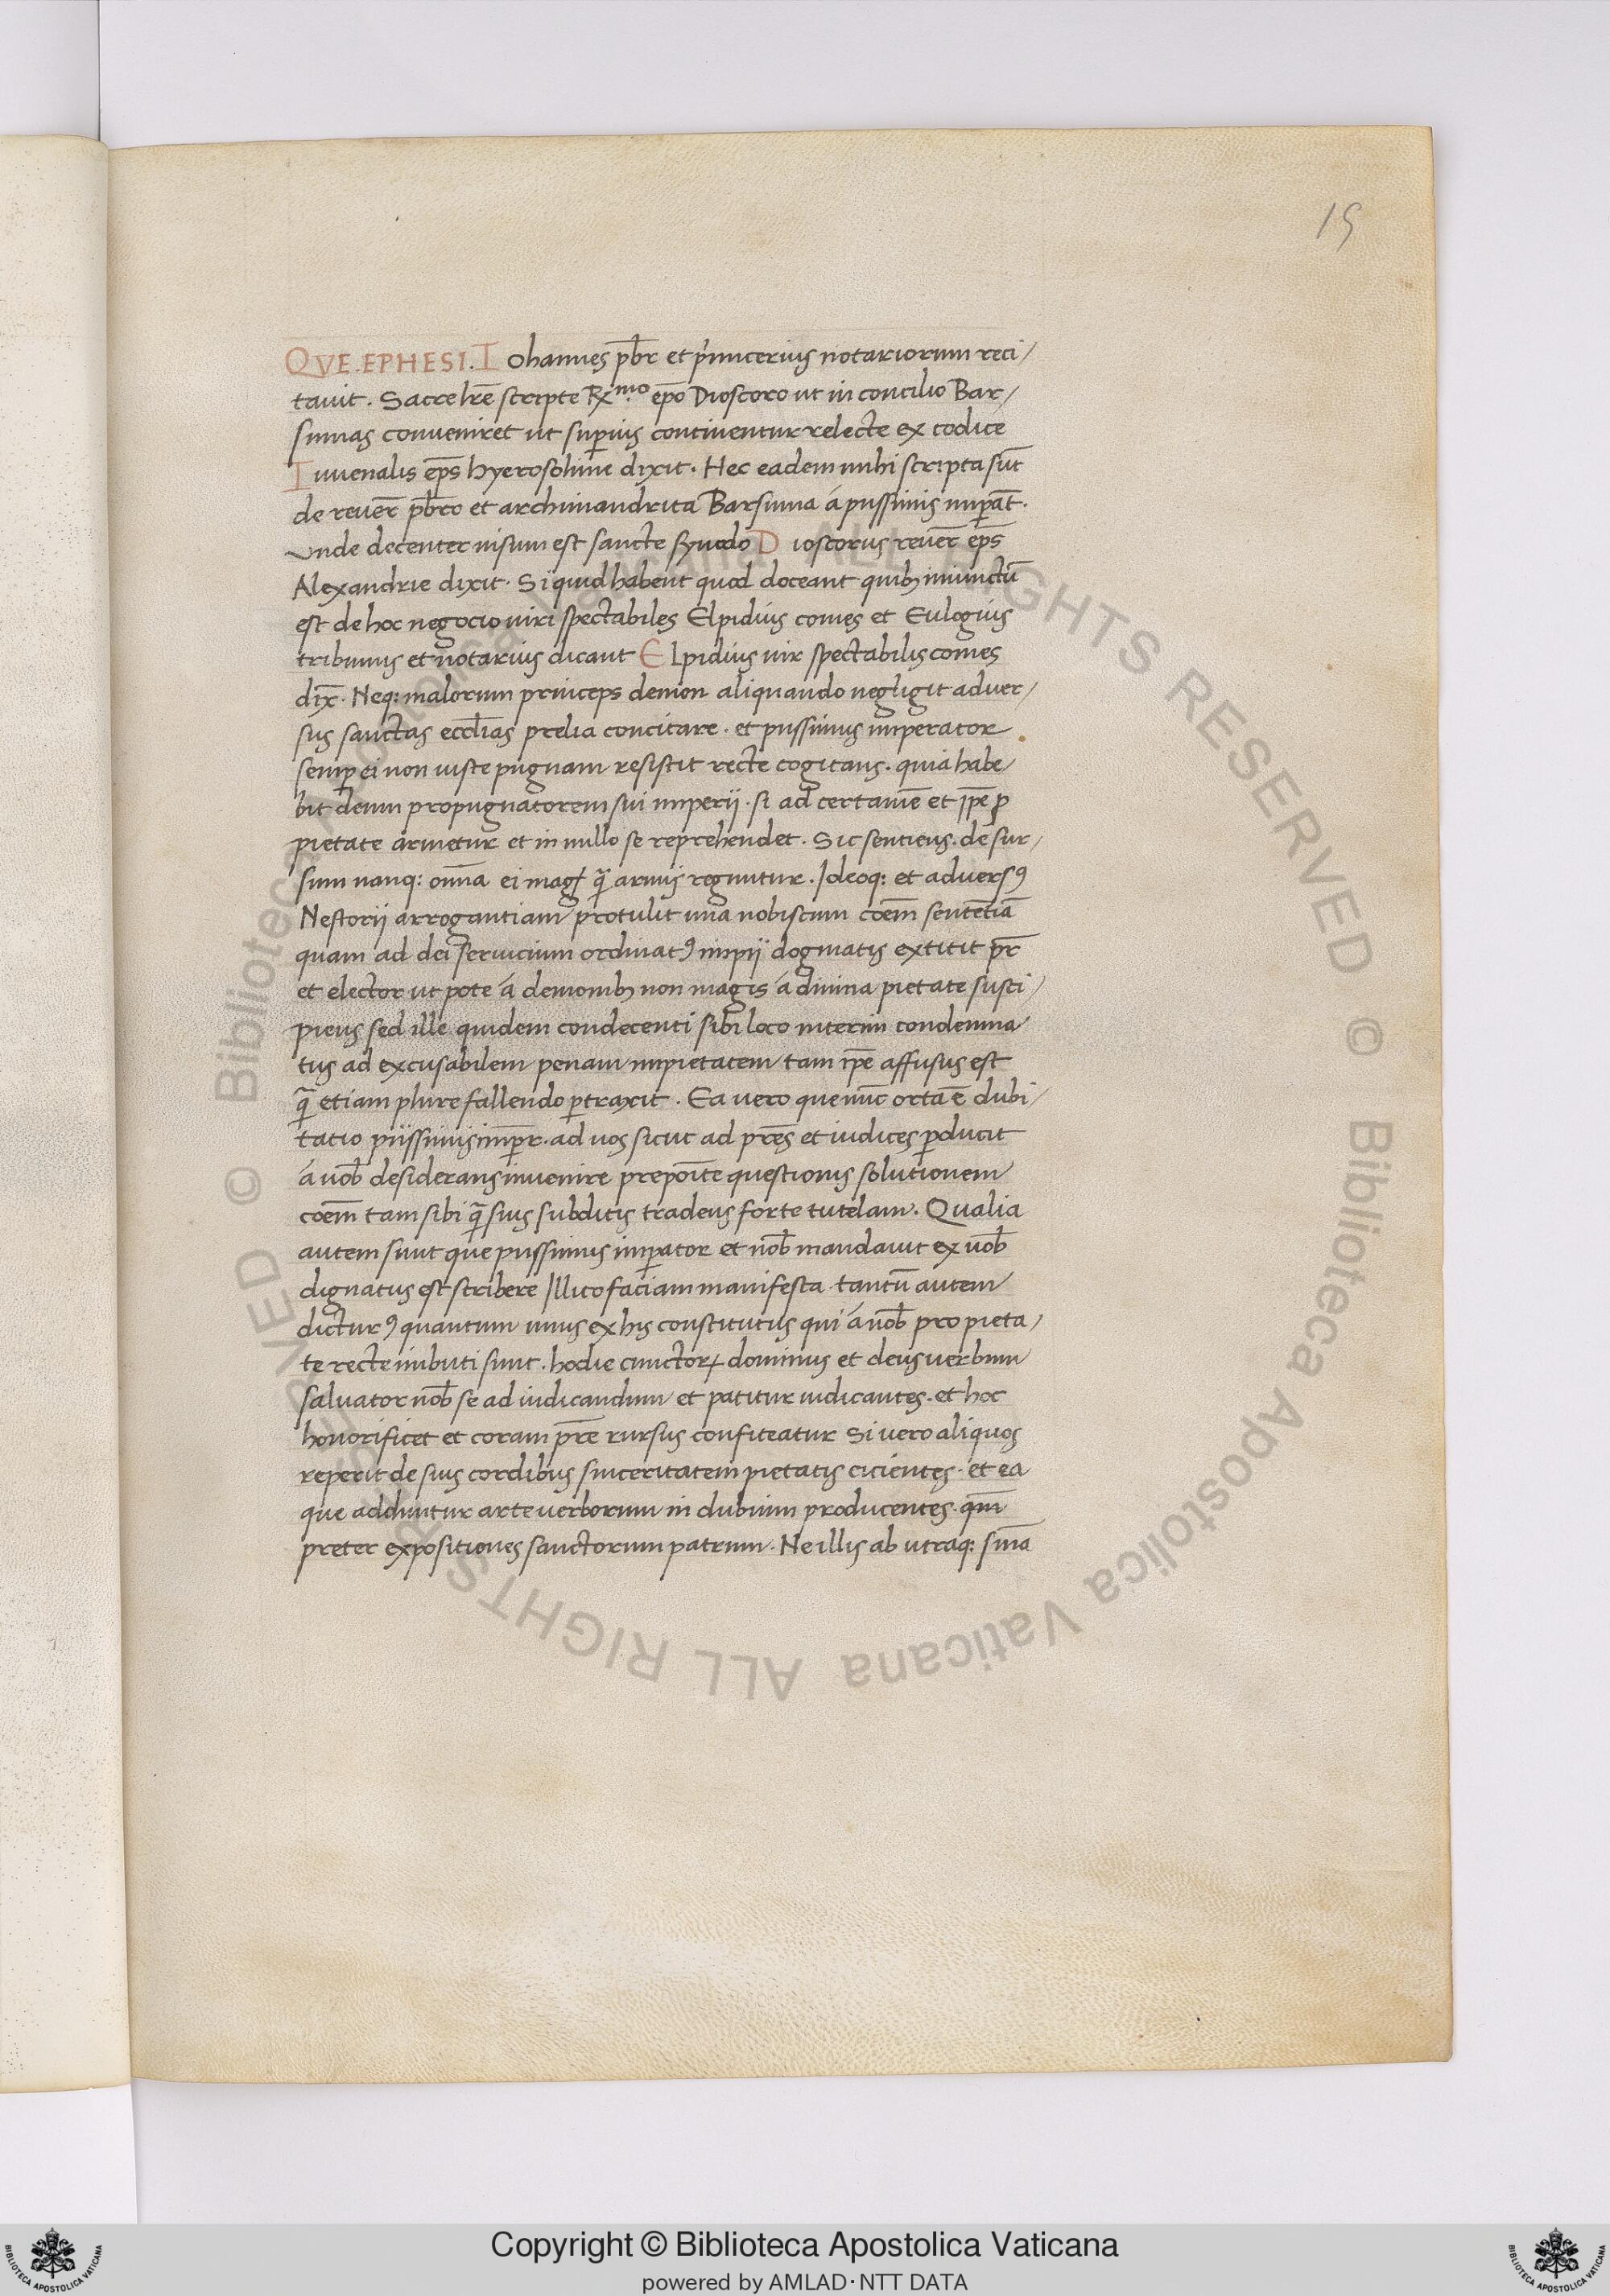 15
QVE.EPHESI. Iohannes pb̄r et p̄rimicerius notariorum reci/
tavit. Sacre lr̄e scripte Rx.mo ep̄o Dioscoro ut in concilio Bar/
sumas conveniret ut sup̄ius continentur relecte ex codice
Iuvenalis ep̄s hyerosolimi dixit. Hec eadem mihi scripta sūt
de rever̄ pb̄ro et archimandrita Barsuma á piissimis imp̄at̄.
vnde decenter visum est sancte synodo Dioscorus rever̄ ep̄s
Alexandrie dixit. Si quid habent quod doceant quibꝫ iniunctū
est de hoc negocio viri spectabiles Elpidius comes et Eulogius
tribunus et notarius dicant Elpidius vir spectabilis comes
dix̄. Neq: malorum princeps demon aliquando negligit adver/
sus sanctas eccl̄ias prelia concitare. et piissimus imperator
semp̄ ei non iuste pugnam resistit recte cogitans. quia habe/
bit deum propugnatorem sui imperii. si ad certamē et ip̄e ꝓ
pietate armetur et in nullo se reprehendet. Sic sentiens. de sur/
sum nanq: om̄a ei mag qā armis regnutur. Ideoq: et aduersꝰ
Nestorii arrogantiam protulit una nobiscum cōem̄ sentētiā
quam ad dei servicium ordinatꝰ impii dogmatis extitit pr̄
et elector ut pote á demonibꝫ non magis á divina pietate susci/
piens sed ille quidem condecenti sibi loco interim condemna
tus ad excusabilem penam impietatem tam ip̄e affusus est
qā etiam plure fallendo p̄traxit. Ea vero que nūc orta ē dubi/
tatio piissimis imp̄r. ad vos sicut ad pr̄es et iudices p̄ducit
á vob̄ desiderans invenire prepoīte questionis solutionem
cōem̄ tam sibi qā suis subditis tradens forte tutelam. Qualia
autem sunt que piissimus imp̄ator et nob̄ mandavit ex vob̄
dignatus est scribere Illico faciam manifesta. tantū autem
dicturꝰ quantum unus ex his constitutis qui á vob̄ pro pieta/
te recte imbuti sunt. hodie cunctoꝝ dominus et deus verbum
salvator nob̄ se ad iudicandum et patitur iudicantes. et hoc
honorificet et coram pr̄e rursus confiteatur Si vero aliquos
reperit de suis cordibus sinceritatem pietatis eicientes. et ea
que adduntur arte verborum in dubium producentes. qm̄
preter expositiones sanctorum patrum. Ne illis ab utraq: sm̄a
Copyright © Biblioteca Apostolica Vaticana
powered by AMLAD·NTT DATA
© Biblioteca Apostolica Vaticana ALL RIGHTS RESERVED © Biblioteca Apostolica Vaticana ALL RIGHTS RESERVED
BIBLIOTECA APOSTOLICA VATICANA
BIBLIOTECA APOSTOLICA VATICANA